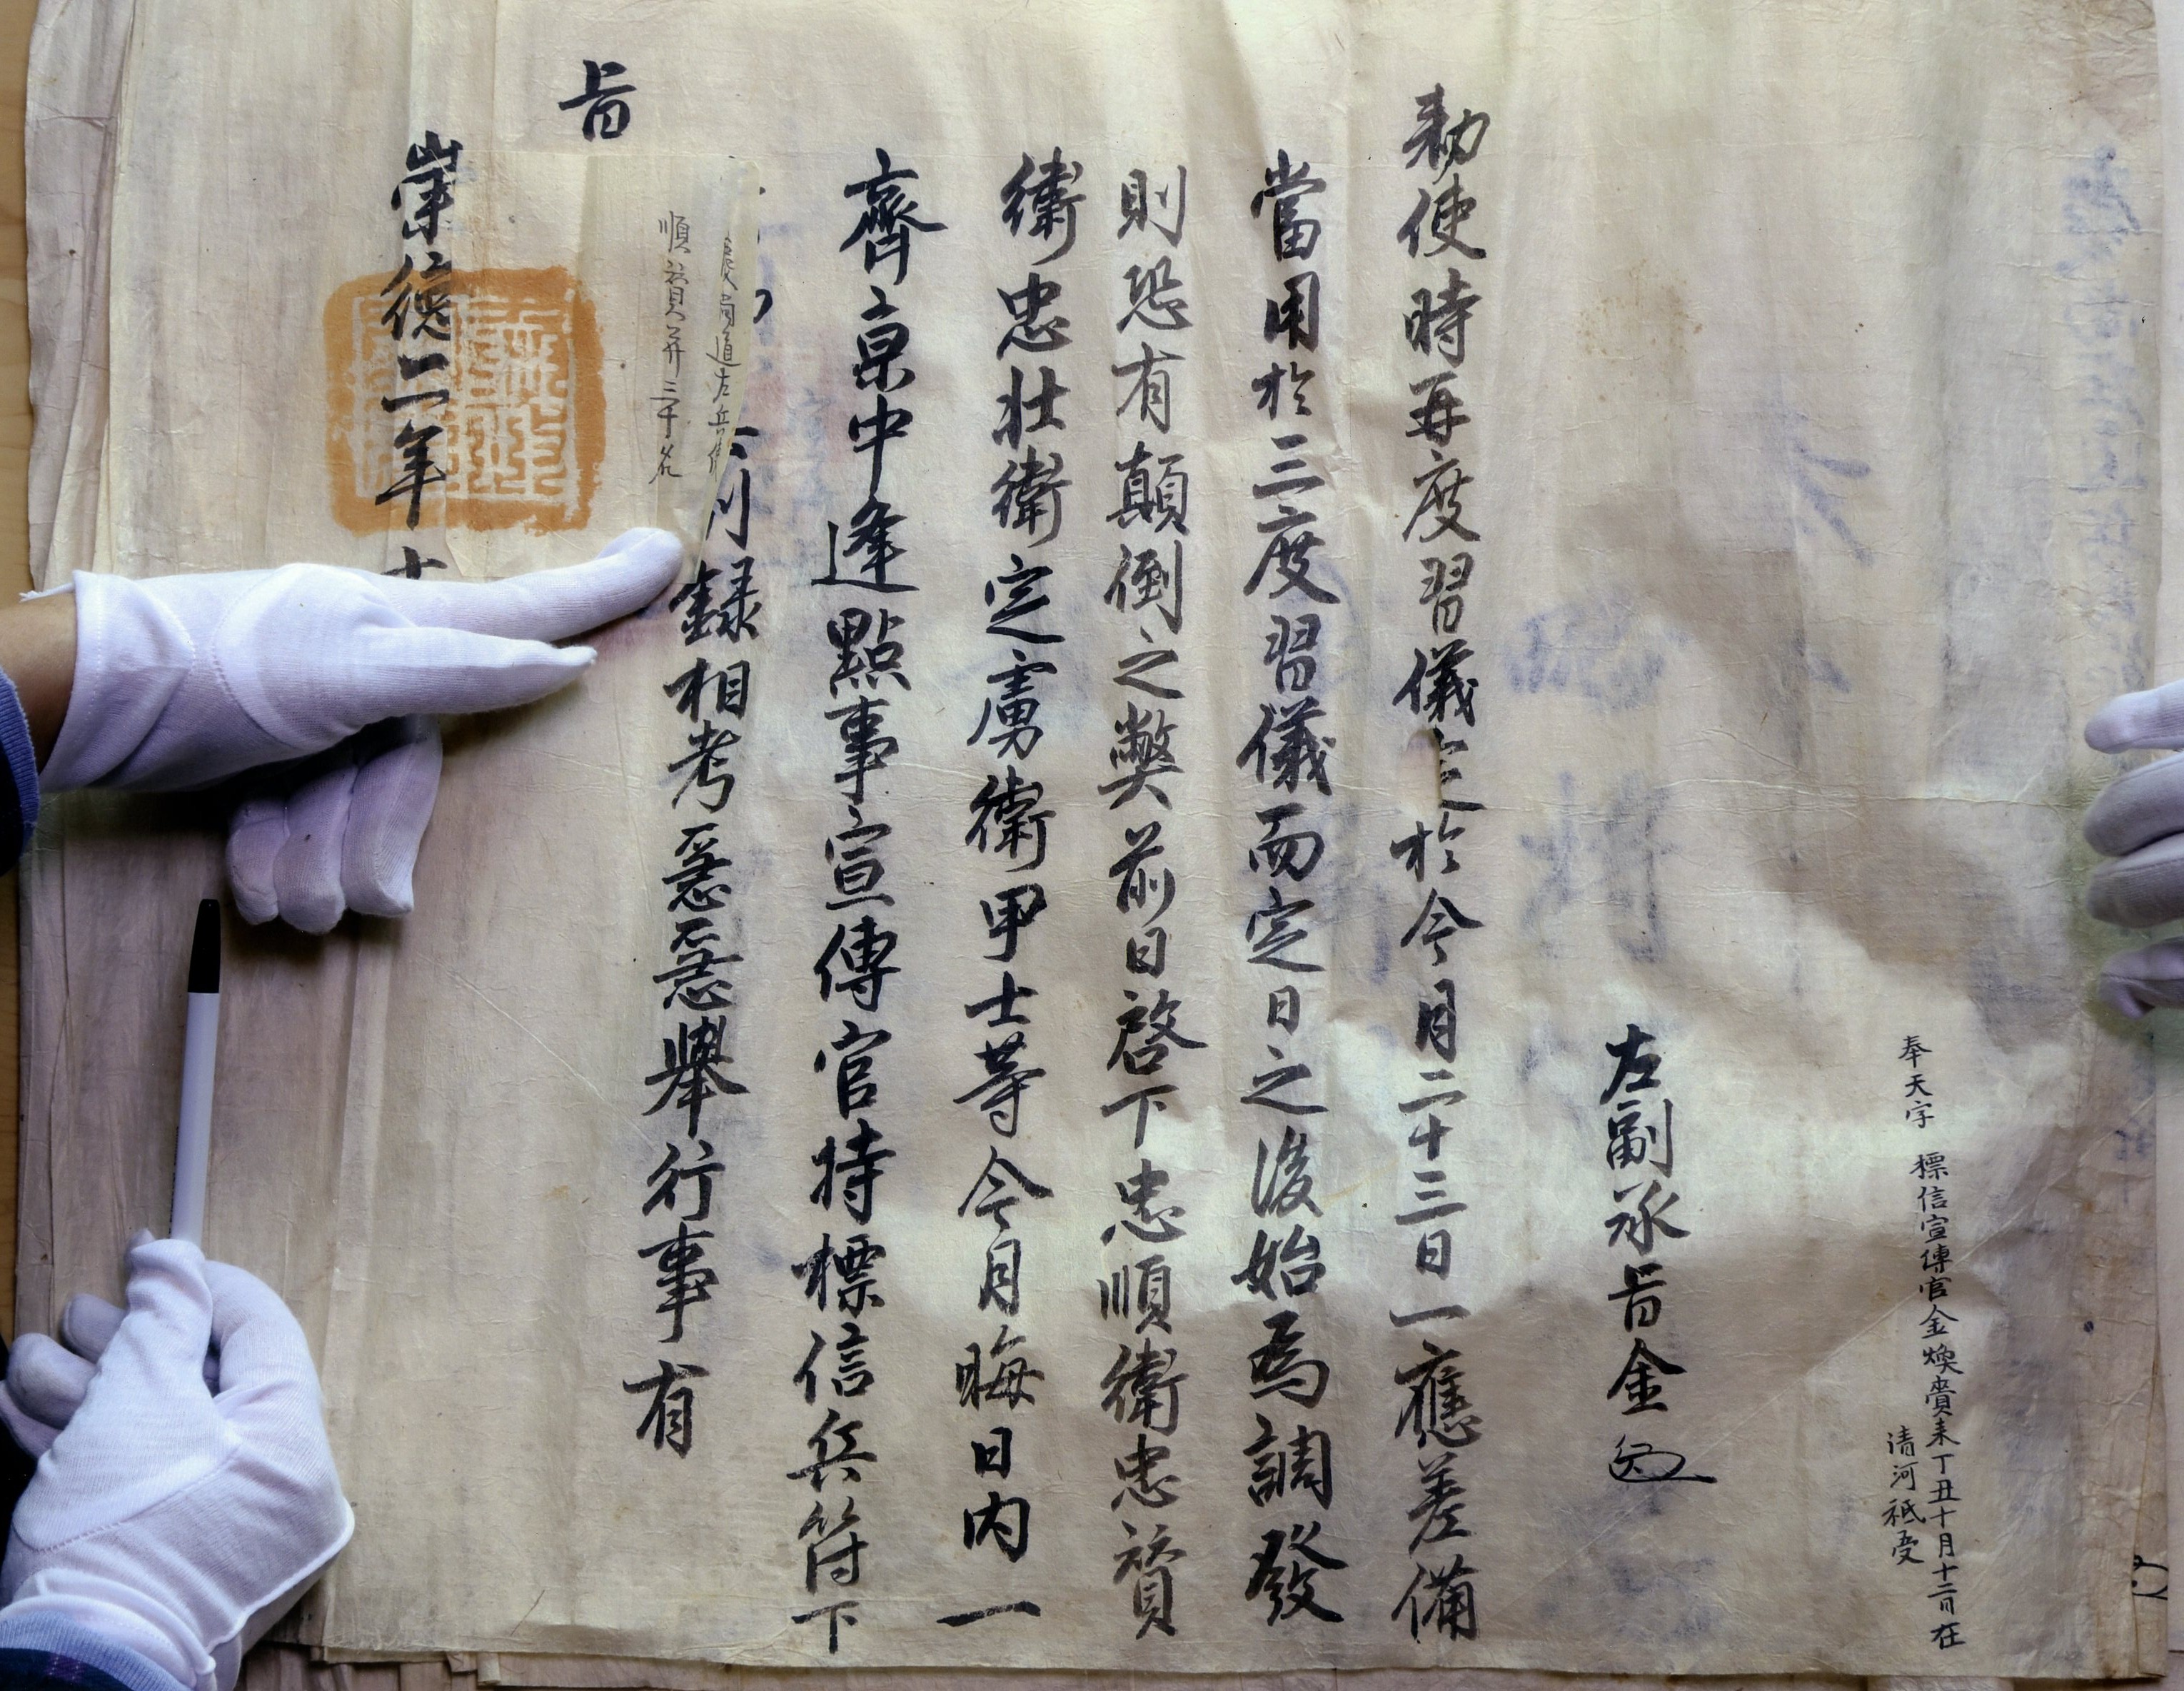 奉天字 標信宣傳官金煥賫來丁丑十月十二日在
清河祗受
左副承旨金
勅使時再度習儀定於今月二十三日一應差備
當用於三度習儀而定日之後始爲調發
則恐有顚倒之弊前日啓下忠順衛忠贊
衛忠壯衛定虜衛甲士等今月晦日內一
齊京中逢點事宣傳官持標信兵符下
錄相考急急擧行事有
道左兵
順贊并三千名
旨
崇德二年十